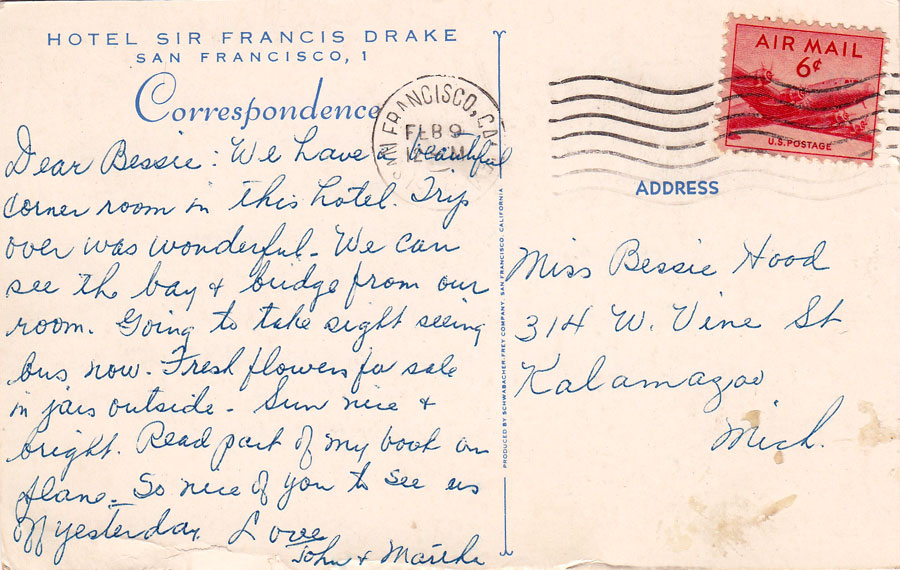 HOTEL SIR FRANCIS DRAKE
SAN FRANCISCO, 1
Correspondence
Dear Bessie: We have a beautiful
corner room in this hotel. Trip
over was wonderful - We can
see the bay & bridge from our
room. Going to take sight seeing
bus now - Fresh flowers for sale
in jars outside - Sun nice &
bright. Read part of my book on
plane - So nice of you to see us
off yesterday. Love
John & Martha
SAN FRANCISCO, CAL
FEB 9
PRODUCED BY SCHWABACHER-FREY COMPANY, SAN FRANCISCO, CALIFORNIA
AIR MAIL
6¢
U.S. POSTAGE
ADDRESS
Miss Bessie Hood
314 W. Vine St
Kalamazoo
Mich.